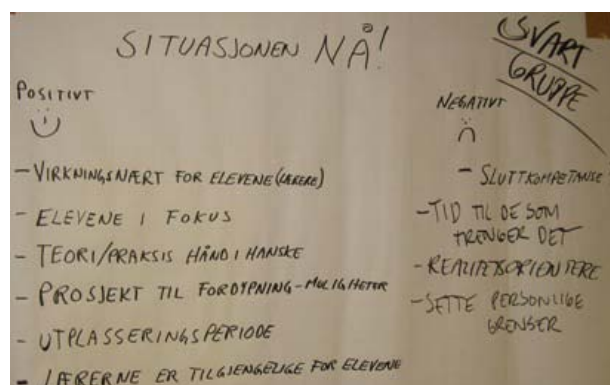 SITUASJONEN NÅ!
SVART
GRUPPE
POSITIVT
- VIRKNINGSNÆRT FOR ELEVENE (LÆRERE)
- ELEVENE I FOKUS
- TEORI/PRAKSIS HÅND I HANSKE
- PROSJEKT TIL FORDYPNING - MULIGHETER
- UTPLASSERINGSPERIODE
- LÆRERNE ER TILGJENGELIGE FOR ELEVENE
NEGATIVT
- SLUTTKOMPETANSE
- TID TIL DE SOM
TRENGER DET
- REALITETSORIENTERE
- SETTE PERSONLIGE
GRENSER